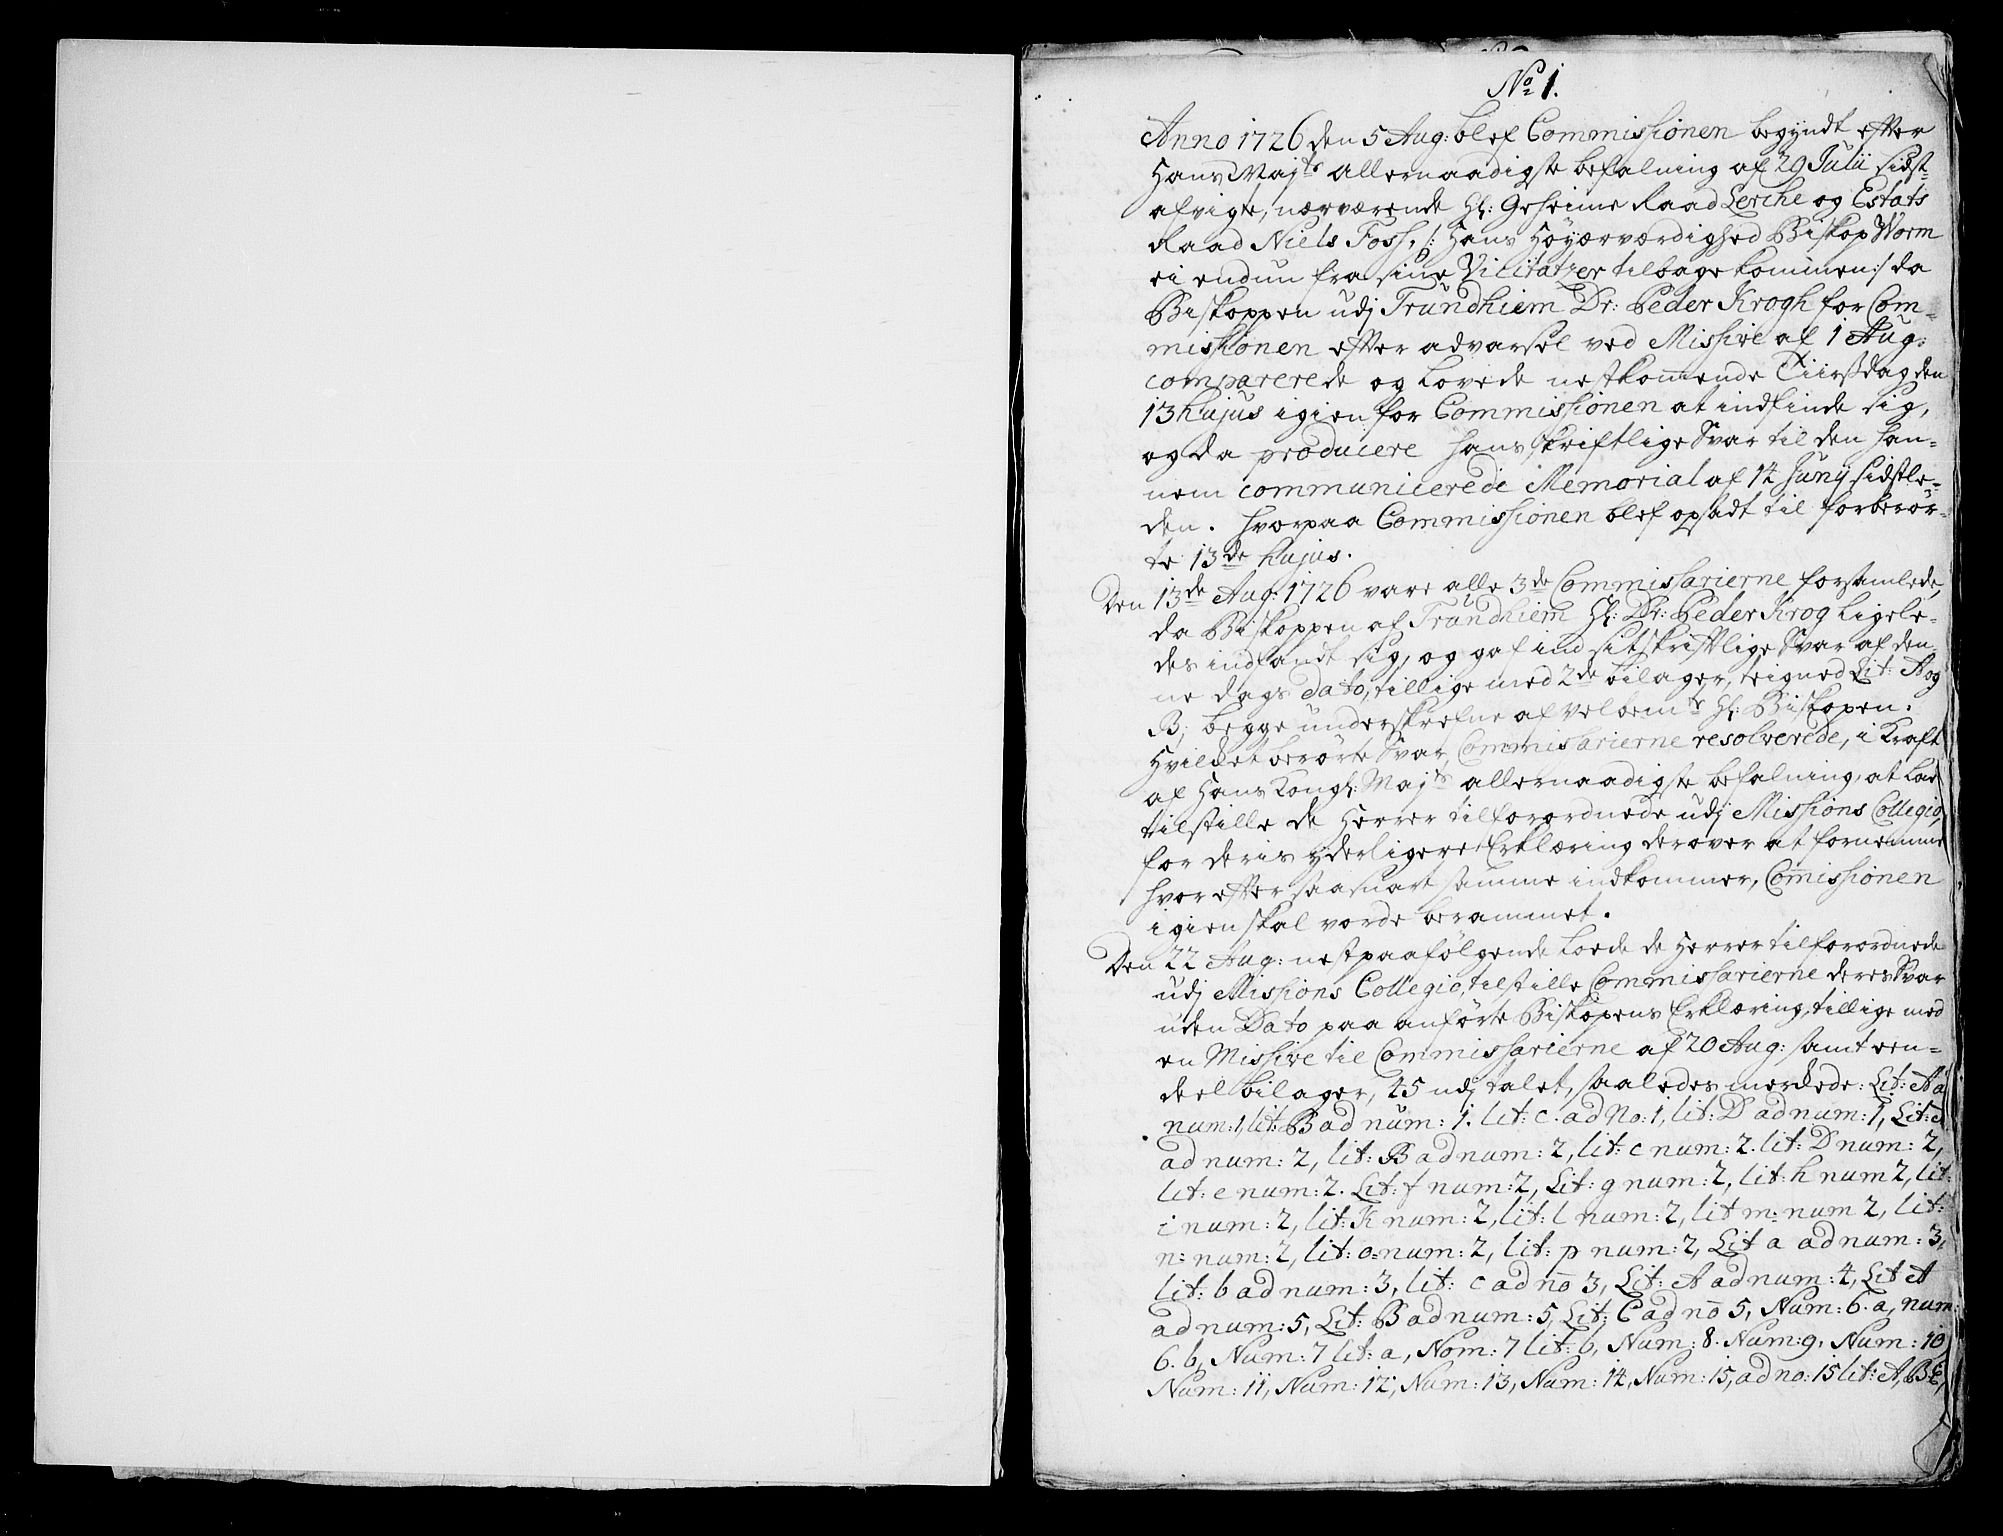 No 1.
Anno 1726 den 5 Aug: blef Commissionen begyndt efter
Hans Majts allernaadigste befalning af 29 Julii sidst
afvigte, nærværende Hr: Geheime Raad Lerche og Estats
Raad Niels Foss, /: Hans Höyærværdighed Biskop Worm
ei endnu fra sine Visitatzer tilbage kommen:/ da
Biskoppen udj Trundhiem Dr: Peder Krogh for Com-
missionen efter advarsel ved Missive af 1 Aug:
comparerede og lovede nestkommende Tiirsdag den
13 hujus igien for Commissionen at indfinde sig,
og da producere hans skriftlige Svar til den han-
nem communicerede Memorial af 14 Junij sidstle-
den. Hvorpaa Commissionen blef opsadt til forberör-
te 13de hujus.
Den 13de Aug: 1726 vare alle 3de Commissarierne forsamlede,
da Biskoppen af Trundhiem Hr: Dr: Peder Krog ligele-
des indfandt sig, og gaf ind sit skriftlige Svar af den-
ne dags dato, tillige med 2de bilager, teigned Lit: A og
B; begge underskrefne af velbemte Hr: Biskopen.
Hvilket berörte Svar Commissarierne resolverede, i Kraft
af Hans Kongl: Majts allernaadigste befalning, at lade
tilstille de Herrer tilforordnede udj Missions Collegio,
for deris yderligere Erklæring derover at fornemme
hvorefter saasnart samme indkommer, Comissionen
igien skal vorde berammet.
Den 22 Aug: nestpaafölgende loede de Herrer tilforordnede
udj Missions Collegio, tilstille Commissarierne deres Svar
uden Dato paa anförte Biskopens Erklæring, tillige med
en Missive til Commissarierne af 20 Aug: samt een-
deel bilager, 45 udj talet, saaledes merkede: Lit: A ad
num: 1, lit: B ad num: 1. lit: c. ad No: 1, lit: D ad num: 1, Lit: a
ad num: 2, lit: B ad num: 2, lit: c num: 2. lit: D num: 2,
lit: e num: 2. Lit: f num: 2, Lit: g num: 2, lit: h num 2, lit:
i num: 2, lit: K num: 2, lit: l num: 2, lit m: num 2, lit:
n: num: 2, lit: o: num: 2, lit: p num: 2, Lit a ad num: 3,
lit: b ad num: 3, lit: c ad no 3, Lit: A ad num: 4, Lit A
ad num: 5, Lit: B ad num: 5, Lit: C ad no 5, Num: 6. a, num:
6. b, Num: 7 lit: a, Nom: 7 lit: b, Num: 8. Num: 9, Num: 10
Num: 11, Num: 12, Num: 13, Num: 14, Num: 15, ad no: 15 lit: A, B C,